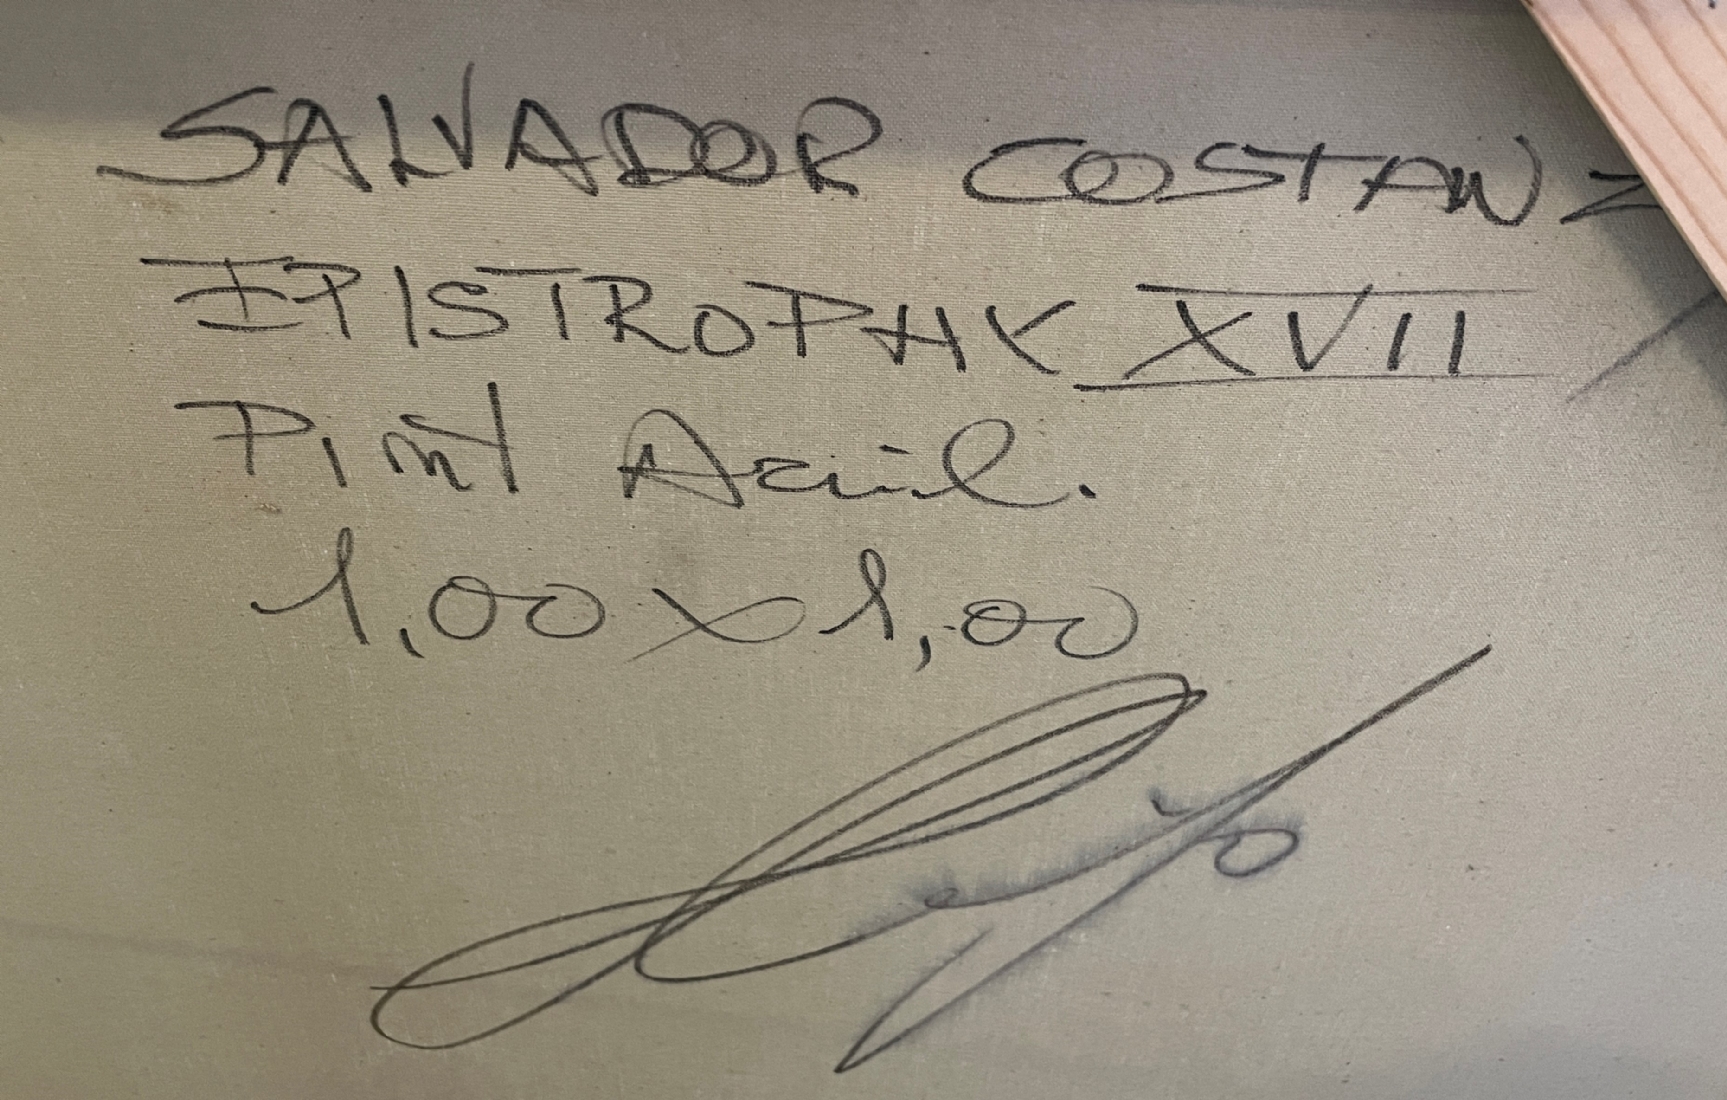 SALVADOR COSTANZ
EPISTROPHY XVII
Pint Acril.
1,00 x 1,00